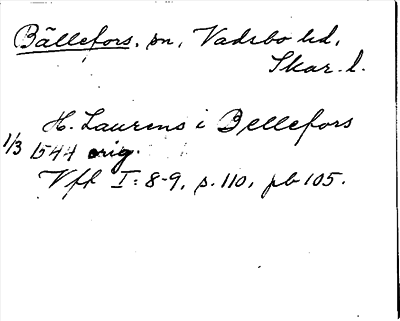 Bällefors, sn, Vadsbo hd,
Skar. l.
H. Laurens i Bellefors
1/3 1544 orig.
Vfl I: 8-9, s. 110, pb 105.